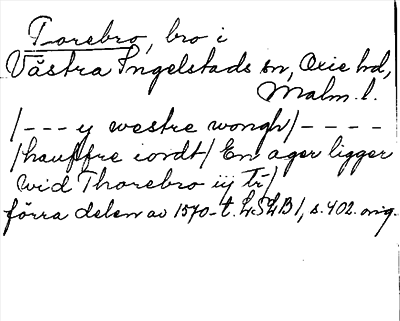 Torebro, bro i
Västra Ingelstads sn, Oxie hd,
Malm. l.
/--- y westre wongh/----
/hauffre iordt/ En ager ligger
wid Thorebro iij Tr/
förra delen av 1570-t. LSLB 1, s. 402. orig.